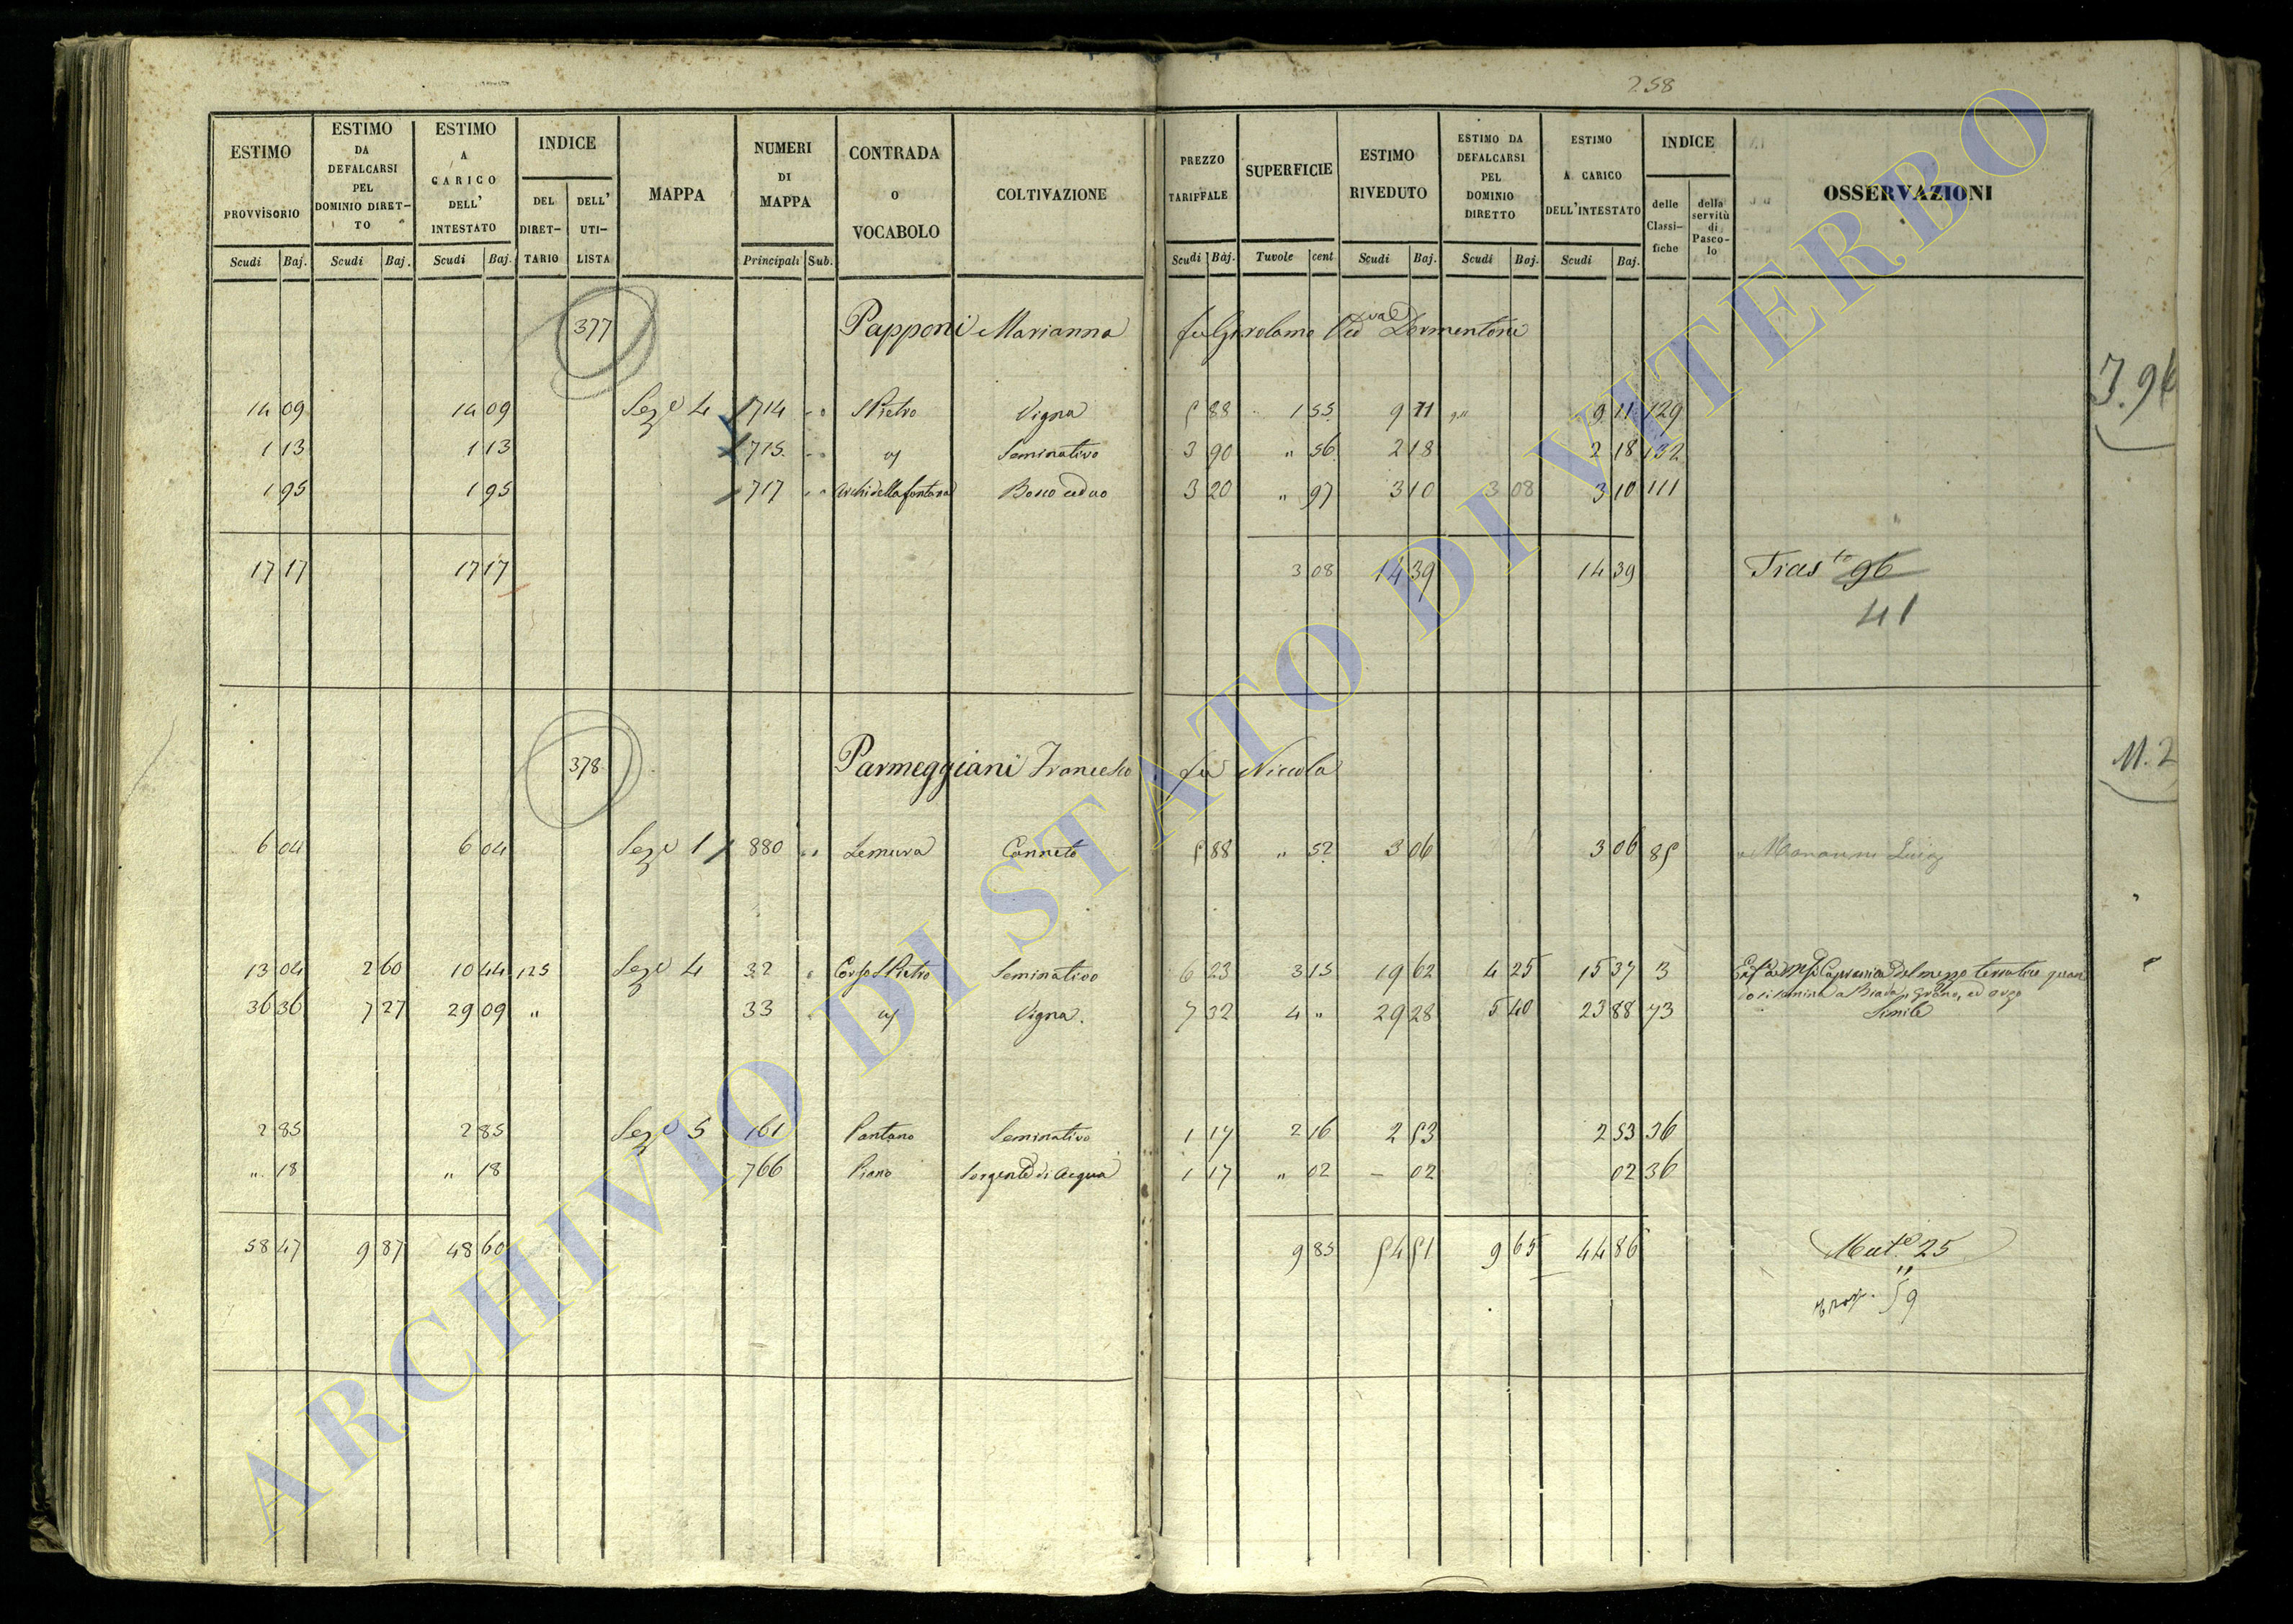 258
ESTIMO PROVVISORIO Scudi Baj.
ESTIMO DA DEFALCARSI PEL DOMINIO DIRET-TO Scudi Baj.
ESTIMO A CARICO DELL' INTESTATO Scudi Baj.
INDICE DEL DIRET-TARIO DELL' UTI-LISTA
MAPPA
NUMERI DI MAPPA Principali Sub.
CONTRADA O VOCABOLO
COLTIVAZIONE
PREZZO TARIFFALE Scudi Baj.
SUPERFICIE Tavole cent
ESTIMO RIVEDUTO Scudi Baj.
ESTIMO DA DEFALCARSI PEL DOMINIO DIRETTO Scudi Baj.
ESTIMO A CARICO DELL'INTESTATO Scudi Baj.
INDICE delle Classi-fiche della servitù di Pasco-lo
OSSERVAZIONI
377 Papponi Marianna fu Girolamo Ved va
14 09 14 09 Sez e 4 1714 S Pietro Vigna 5 88 1 55 9 11 9 11 129
1 13 1 13 1715 " Seminativo 3 90 " 56 2 18 2 18 132
1 95 1 95 1717 Archi della fontana Bosco ceduo 3 20 " 97 3 10 3 08 3 10 111
17 17 17 17 3 08 14 39 14 39 Tras to 96
41
3.96
378 Parmeggiani Francesco fu Niccola
11.2
6 04 6 04 Sez e 1 880 Lemura Canneto 5 88 " 52 3 06 3 06 85 Luigi
13 04 2 60 10 44 125 Sez e 4 32 S Pietro Seminativo 6 23 3 15 19 62 4 25 15 37 3 Capranica del mezzo terratico quan
do si semina a Biada, Grano, ed orzo
36 36 7 27 29 09 " 33 " Vigna 7 32 4 " 29 28 5 40 23 88 73 Simile
2 85 2 85 Sez e 5 161 Pantano Seminativo 1 17 2 16 2 53 2 53 36
" 18 " 18 766 Piano Sorgente di acqua 1 17 " 02 - 02 02 36
58 47 9 87 48 60 9 85 54 51 9 65 44 86 Mut e 25
59
ARCHIVIO DI STATO DI VITERBO